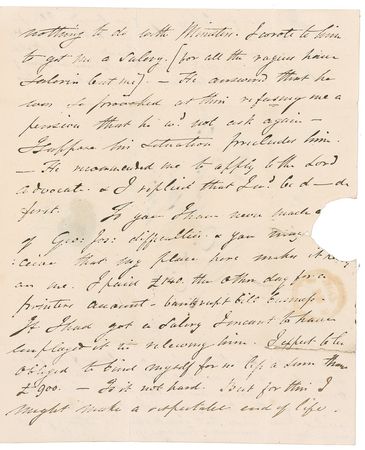 nothing to do with Ministers. I wrote to him
to get me a Salary. [for all the rogues have
Salaries but me] - He answered that he
was so provoked at their refusing me a
pension that he wd. not ask again -
I suppose his situation precludes him.
- He recommended me to apply to the Lord
advocate. & I replied that I wd. be d—d
first. To you I have never made a
of Geo: Jos: difficulties & you
that my place here makes it
on me. I paid £140. the other day for a
printers account - bankrupt
If I had got a Salary I meant to have
employed it in relieving him. I expect to be
obliged to bind myself for no less a sum than
£900. - Is it not hard. But for this I
might make a respectable end of life.